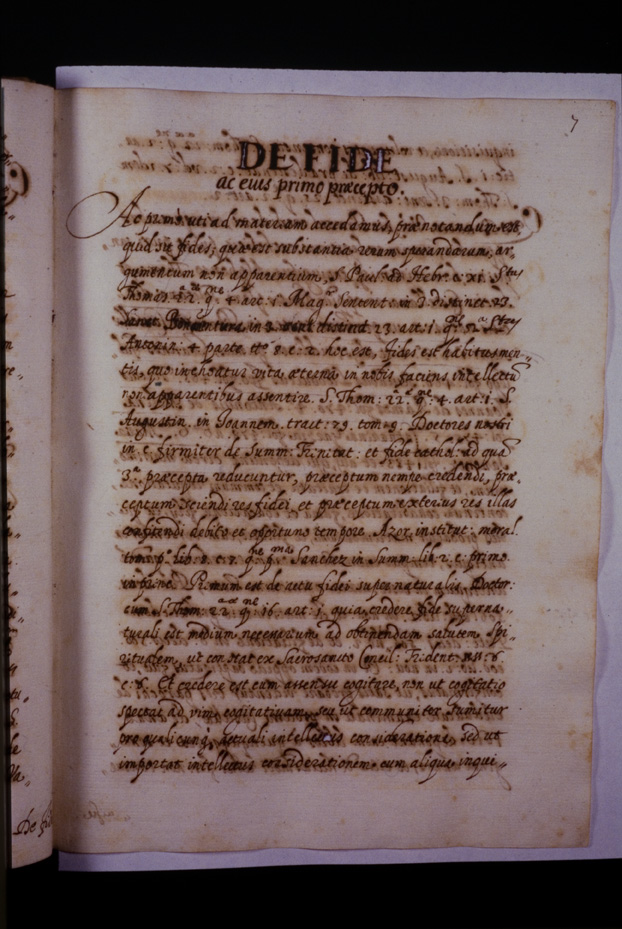 7
DE FIDE
ac eius primo præcepto.
Ac primo uti ad materiam accedamus, prænotandum est
quid sit fides, quæ est substantia rerum sperandarum, ar
gumentum non apparentium, S. Paul. ad Hebr. c. xi. S.tus
Thomas 22. q. 4. art. 1. Mag.r Sentent. in 3. distinct. 23.
Bonaventura in 3. distinct. 23. art. 1.
Antonin. 4. parte tt.o 8. c. 2. hoc est, fides est habitus men„
tis, quo inchoatur vita æterna in nobis faciens intellectū
non apparentibus assentire. S. Thom: 22. q. 4. art: 1. S.
Augustin. in Joannem. tract: 79. tom. 9. Doctores nostri
in c. firmiter de Summ: Trinitat: et fide cathol: ad quā
3.a præcepta reducuntur, præceptum nempe credendi, præ„
ceptum sciendi res fidei et præceptum exterius res illas
confitendi debito et oportuno tempore. Azor. institut: moral.
tom. p.o lib: 8. c. 7. Sanchez in Summ: lib: 2. c: primo
in prine. Primum est de actu fidei supernaturalis, Doctor:
cum S. Thom: 22. q. 16. art: 1. quia credere fide superna„
turali est medium necessarium ad obtinendam salutem Spi„
ritualem, ut constat ex Sacrosancto Concil: Trident:
c: 8. Et credere est cum assensu cogitare, non ut cogitatio
spectat ad vim cogitativam, seu ut communiter sumitur
pro qualicunq. actuali intellectus consideratione, sed ut
importat intellectus considerationem cum aliqua inqui„
De fid